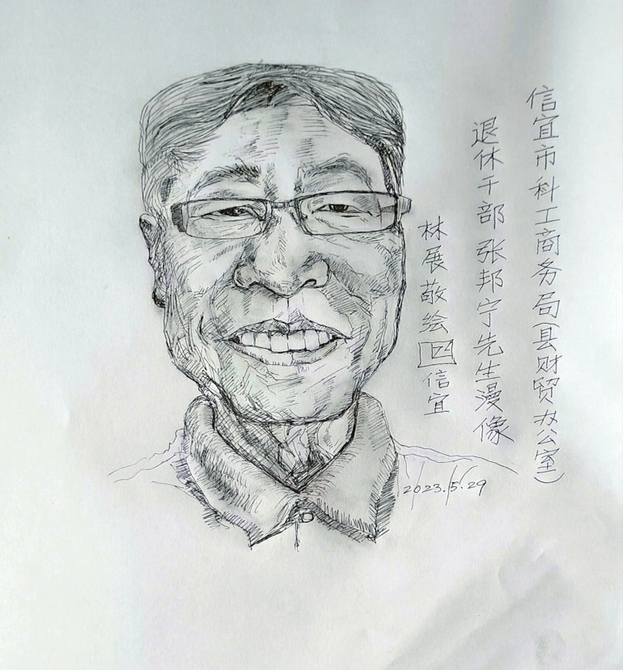 信宜市科工商务局(县财贸办公室)
退休干部张邦宁先生漫像
林展敬绘四信宜
2023.5.29